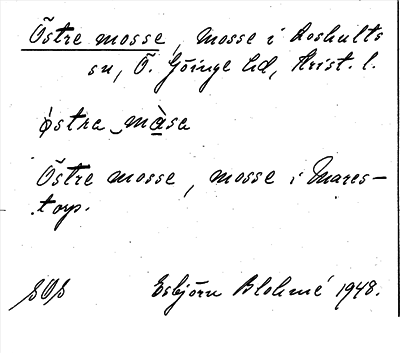 Östre mosse, mosse i Loshults
sn, Ö. Göinge hd, Krist. l.
østra måsa
Östre mosse, mosse i Mares-
torp.
SOS Esbjörn Blohmé 1948.